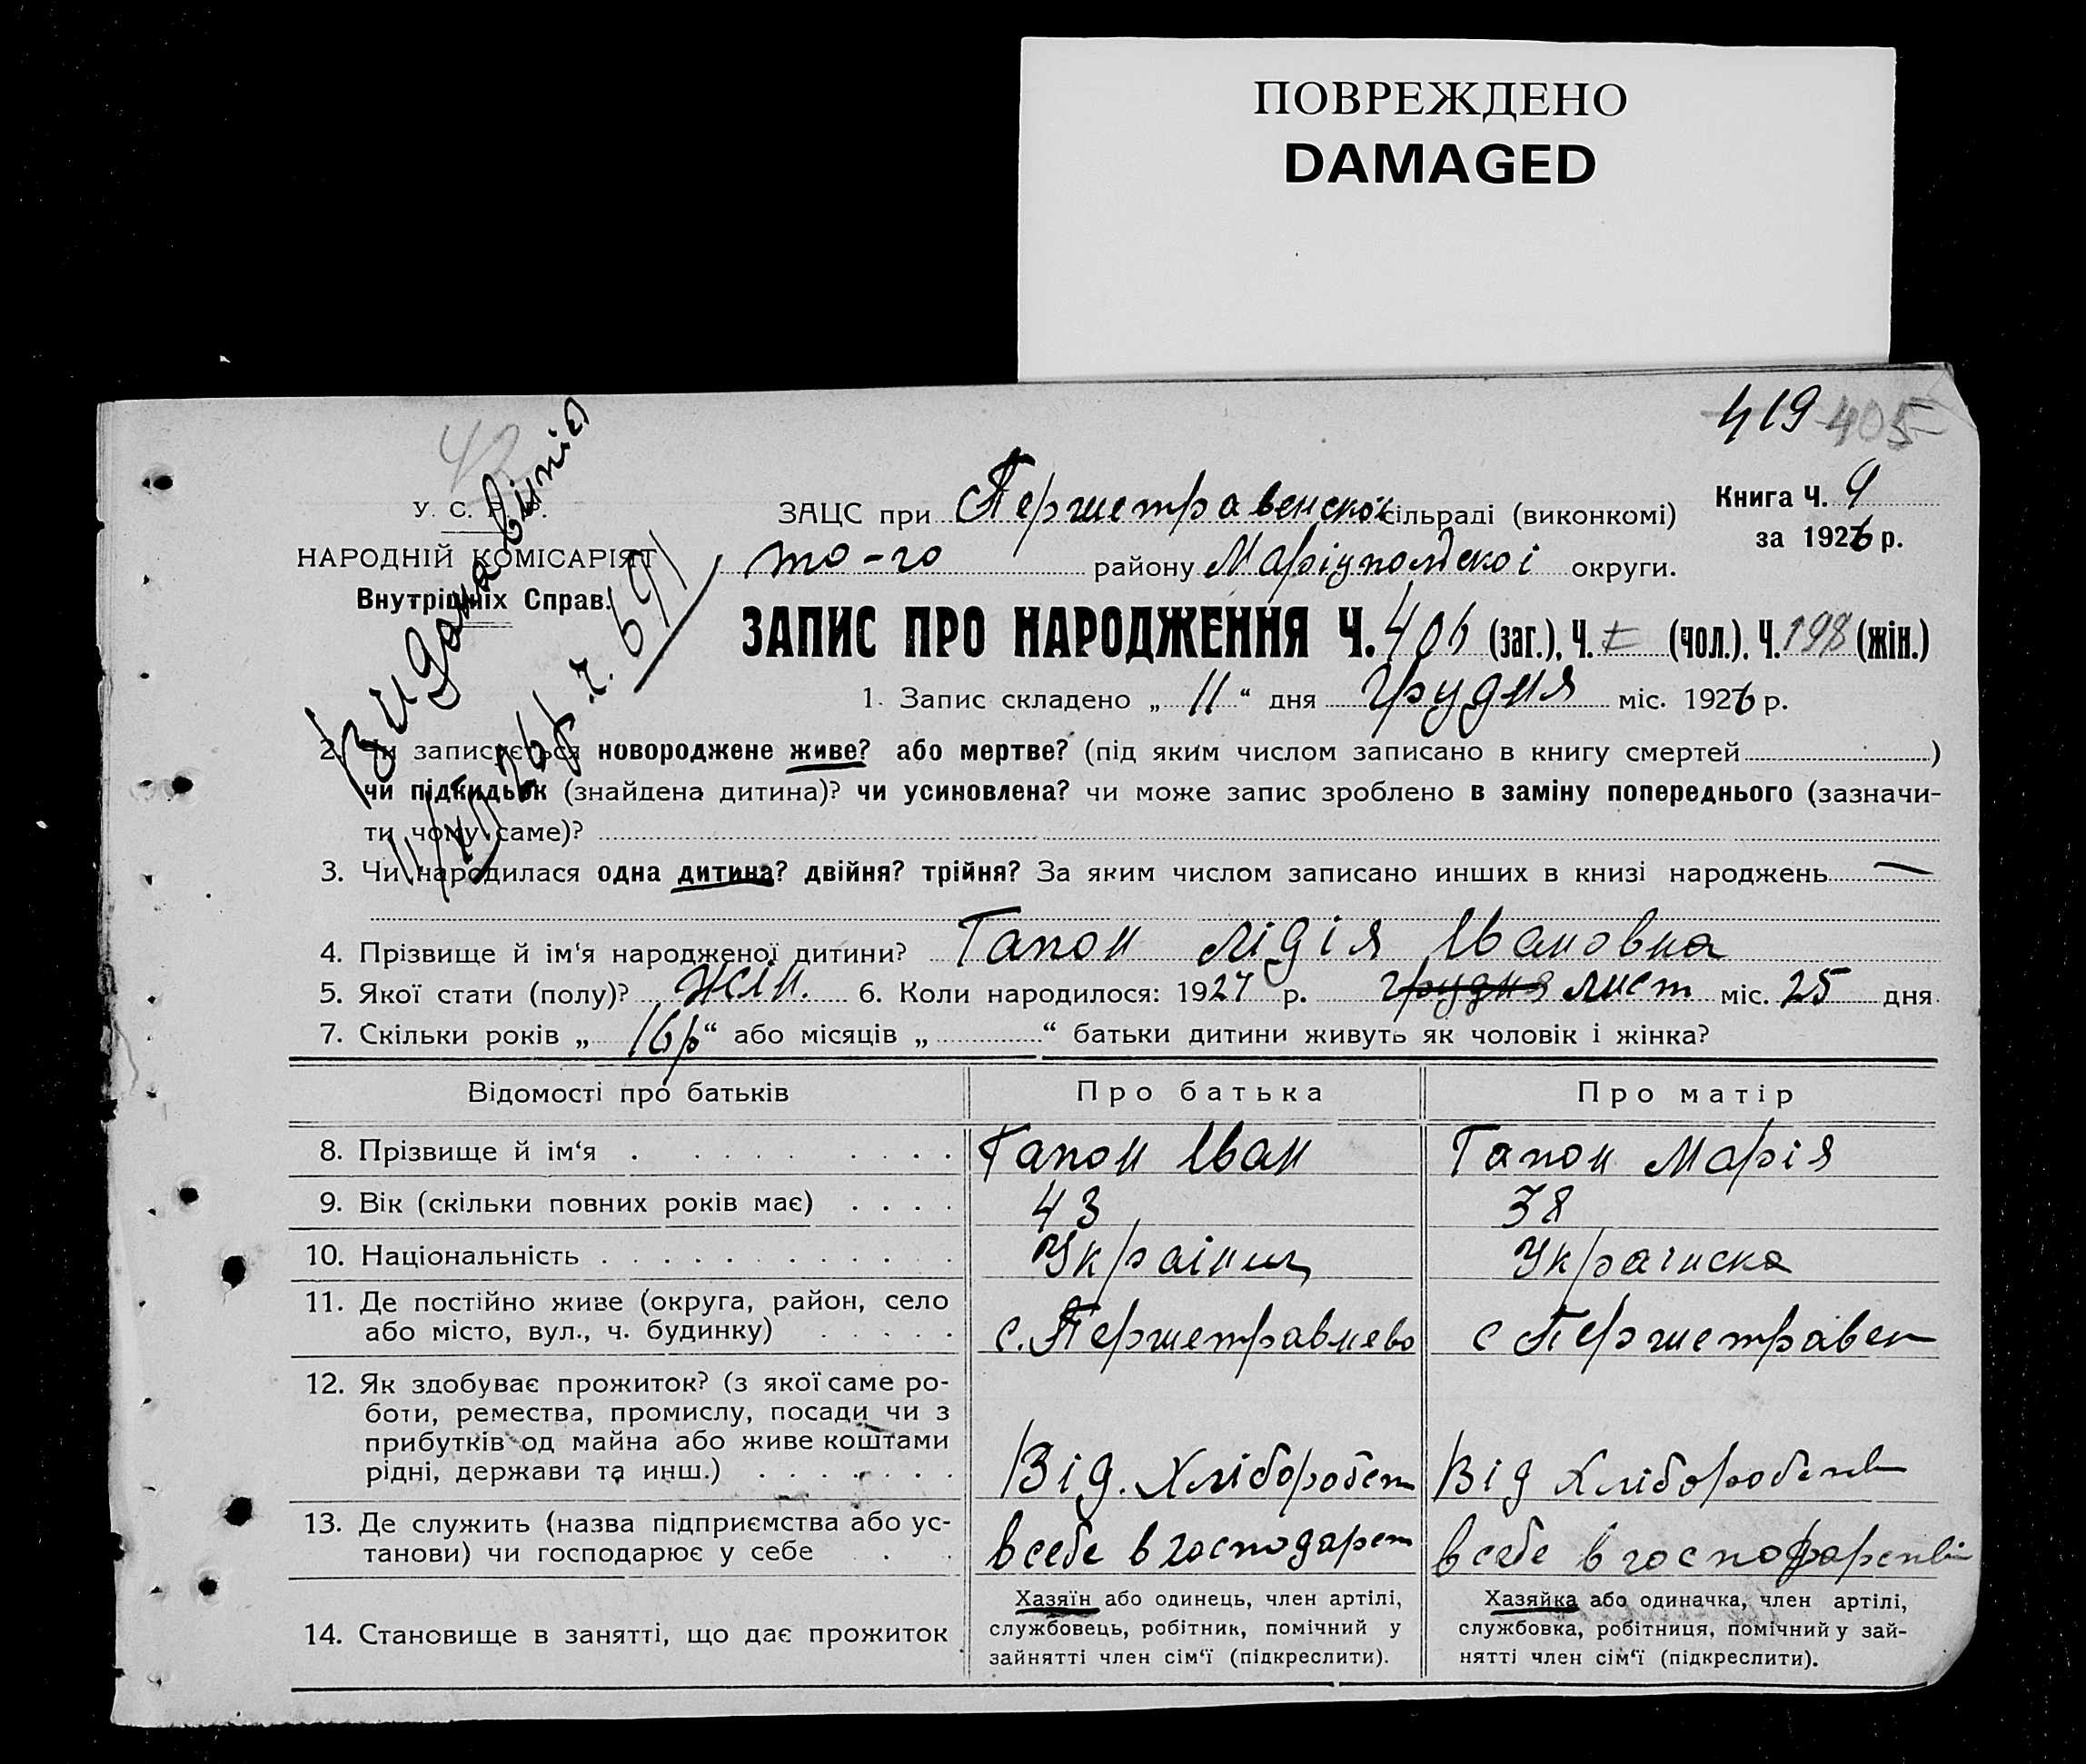 ПОВРЕЖДЕНО
DAMAGED
419 405
42
У. С. Р. Р.
НАРОДНІЙ КОМІСАРІЯТ
Внутрішніх Справ.
Видана витіс
691
ЗАЦС при Першетравенской сільраді (виконкомі)
то-го району Маріупольскоі округи.
Книга Ч. 9
за 1926 р.
ЗАПИС ПРО НАРОДЖЕННЯ Ч. 406 (заг.), Ч. (чол.). Ч. 198 (жін.)
1. Запис складено „ 11 “ дня грудня міс. 1926 р.
2. Чи записується новороджене живе? або мертве? (під яким числом записано в книгу смертей )
чи підкидьок (знайдена дитина)? чи усиновлена? чи може запис зроблено в заміну попереднього (зазначи-
ти чому саме)?
3. Чи народилася одна дитина? двійня? трійня? За яким числом записано инших в книзі народжень —
4. Прізвище й ім‘я народженої дитини? Гапон Лідія Івановна
5. Якої стати (полу)? жін. 6. Коли народилося: 1927 р. грудня лист міс. 25 дня
7. Скільки років „ 16 р “ або місяців „ “ батьки дитини живуть як чоловік і жінка?
Відомості про батьків Про батька Про матір
8. Прізвище й ім‘я . Гапон Іван Гапон Марія
9. Вік (скільки повних років має) 43 38
10. Національність Українец Украінска
11. Де постійно живе (округа, район, село
або місто, вул., ч. будинку) с. Першетравнево с Першетравен
12. Як здобуває прожиток? (з якої саме ро-
боти, ремества, промислу, посади чи з
прибутків од майна або живе коштами
рідні, держави та инш.) Від. Хліборобст Від Хліборобств
13. Де служить (назва підприємства або ус-
танови) чи господарює у себе в себе в господарст в себе в господарстві
14. Становище в занятті, що дає прожиток
Хазяїн або одинець, член артілі,
службовець, робітник, помічний у
зайнятті член сім‘ї (підкреслити).
Хазяйка або одиначка, член артілі,
службовка, робітниця, помічний у зай-
нятті член сім‘ї (підкреслити).